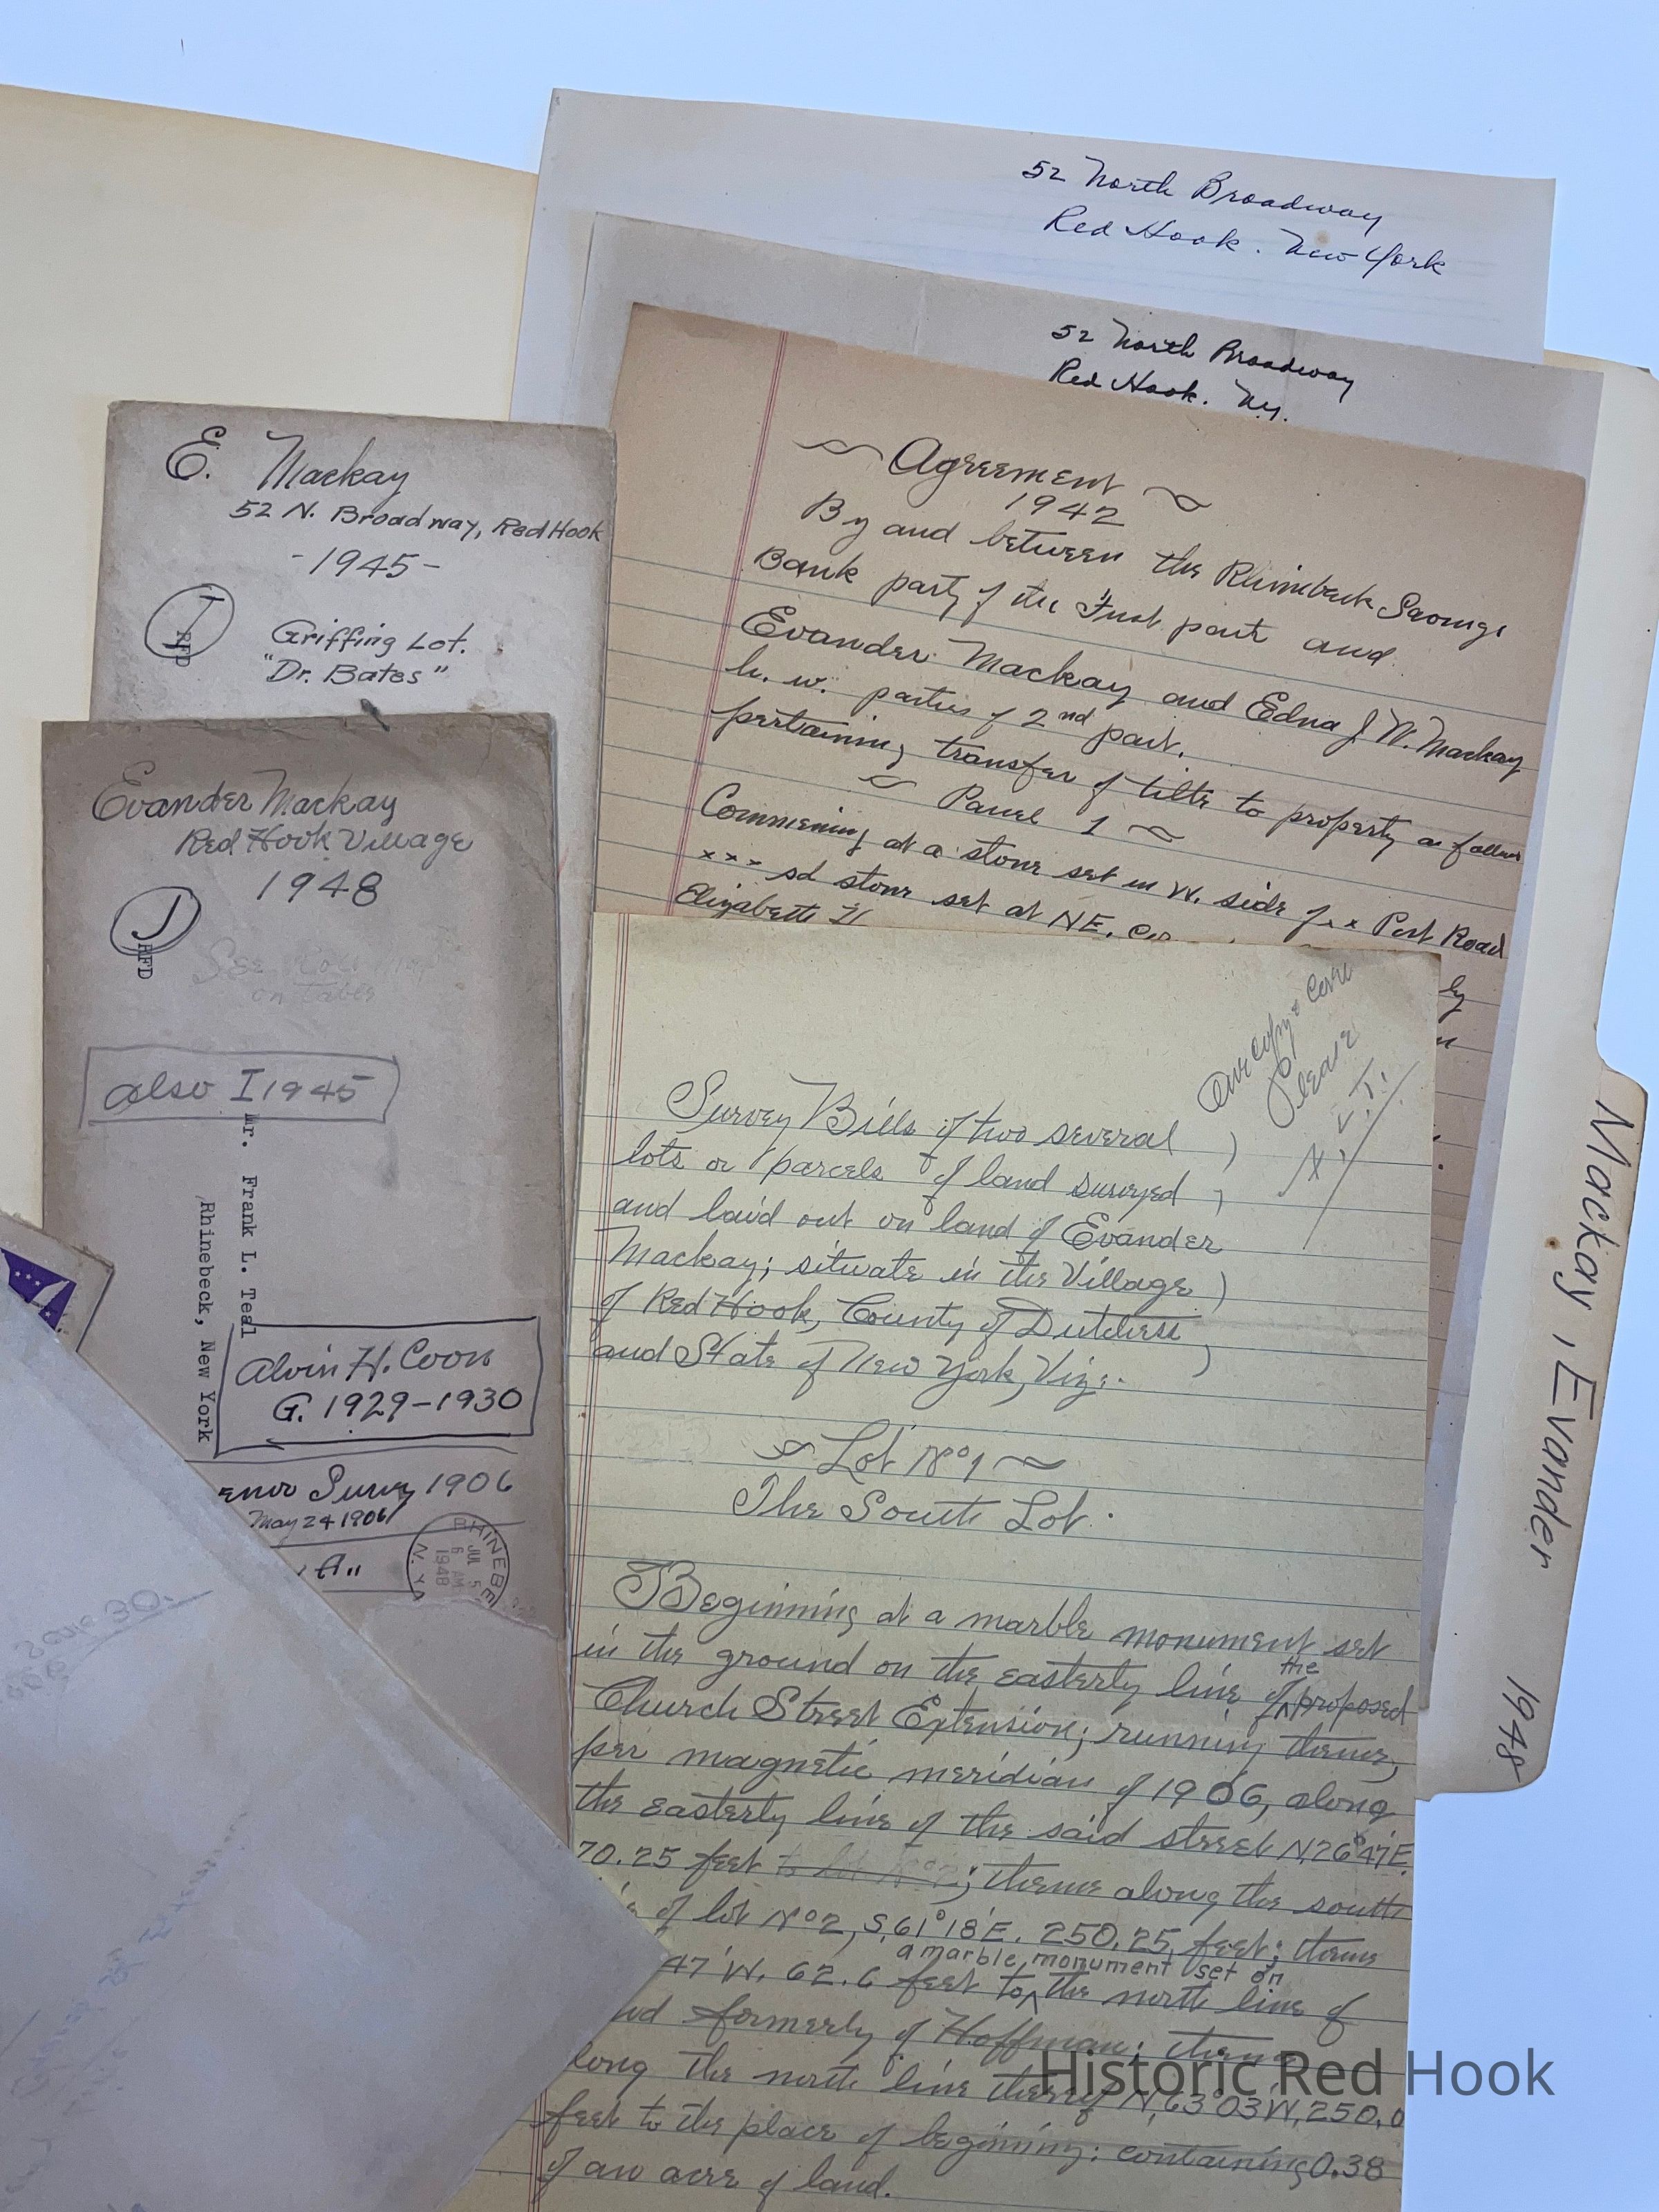 52 North Broadway
Red Hook. New York
52 North Broadway
Red Hook. N.y.
E. Mackay
52 N. Broadway, Red Hook
-1945-
I
RFD
Griffing Lot.
"Dr. Bates"
Evander Mackay
Red Hook Village
1948
J
RFD
See
on Table
also I 1945
Mr. Frank L. Teal
Rhinebeck, New York
Alvin H. Coon
G. 1929-1930
Survey 1906
May 24 1906
RHINEBE
JUL 5
6 AM
1948
N.Y.
Agreement
1942
By and between the Rhinebeck Savings
Bank party of the First part and
Evander Mackay and Edna J. W. Mackay
h. w. parties of 2nd part.
pertaining transfer of title to property as follows
Parcel 1
Commencing at a stone set in W. side of x x Post Road
x x x sd stone set at NE. Cor
Elizabeth H
by
One copy & Cover
Please
Survey Bills of two several
lots or parcels of land surveyed
and laid out on land of Evander
Mackay; situate in the Village
of Red Hook, County of Dutchess
and State of New York, Viz:-
Lot No 1
The South Lot.
Beginning at a marble monument set
in the ground on the easterly line of the proposed
Church Street Extension; running thence,
per magnetic meridian of 1906, along
the easterly line of the said street N.26°47'E.
70.25 feet to lot No 2; thence along the south
of lot No 2, S.61°18'E. 250.25 feet; thence
47'W. 62.6 feet to a marble monument set on the north line of
formerly of Hoffman; thence
long the north line thereof N.63°03'W. 250.0
feet to the place of beginning: containing 0.38
of an acre of land.
Mackay, Evander 1948
Scale 30.
Historic Red Hook